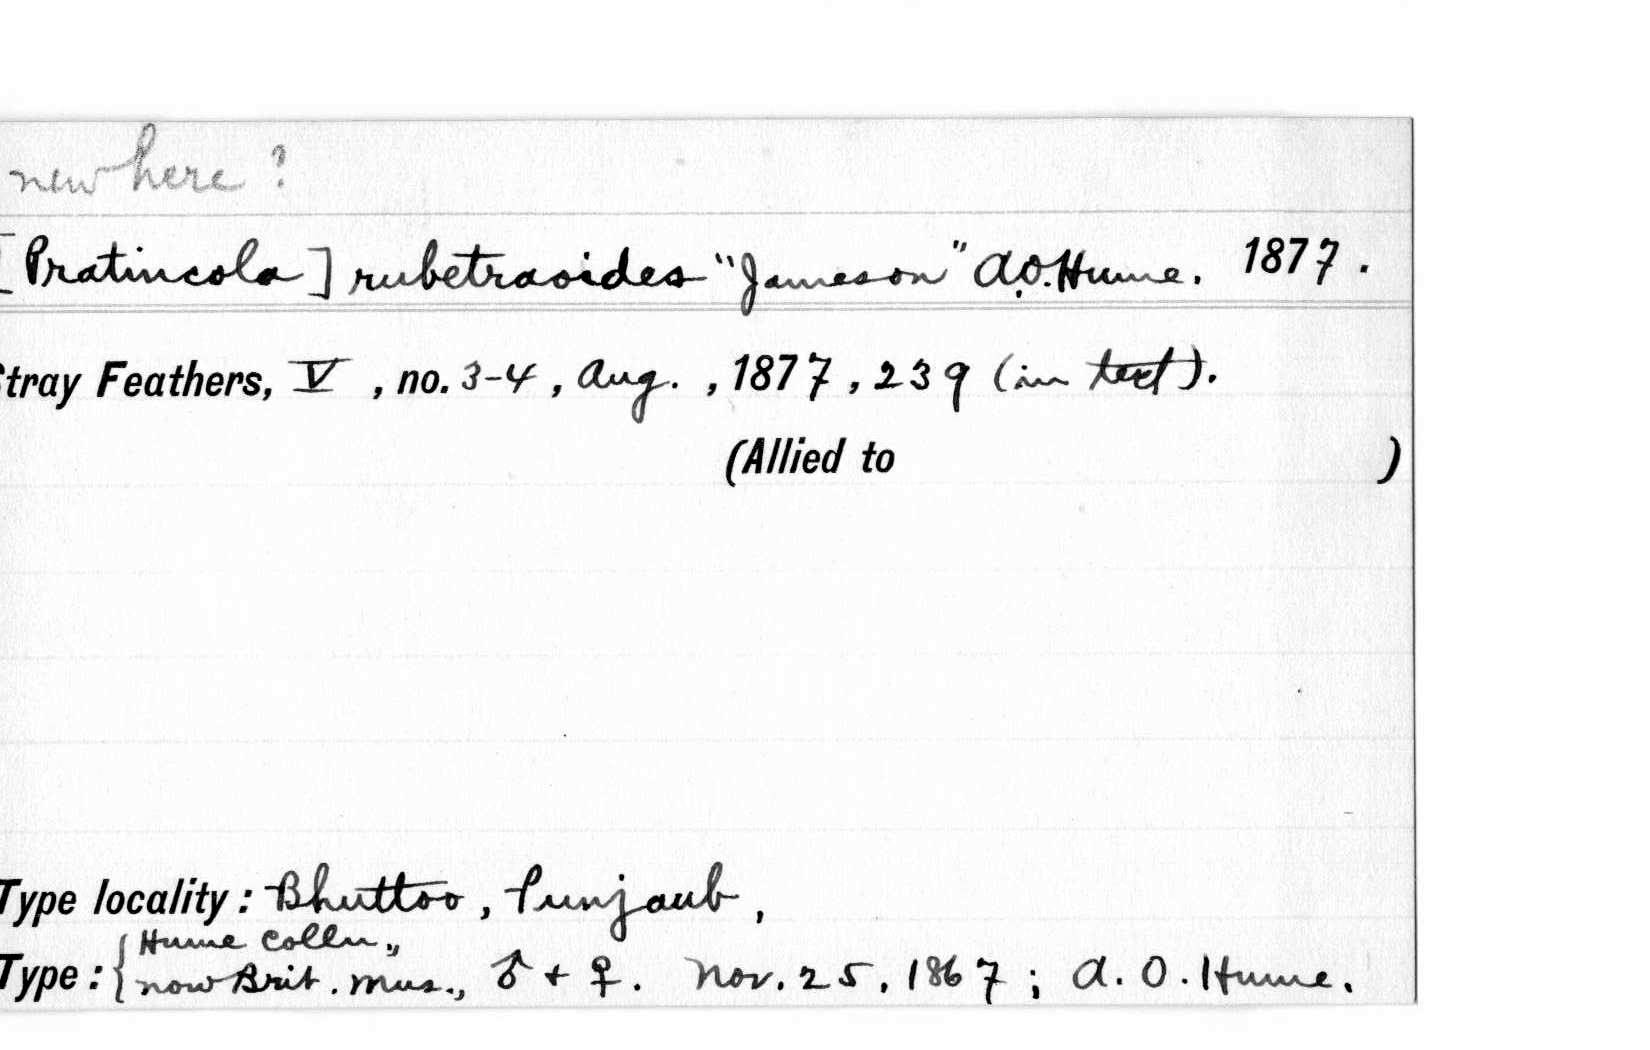 new here?
[Pratincola] rubetraoides "Jameson" A.O. Hume. 1877.
Stray Feathers, V, no. 3-4, Aug., 1877, 239 (in text).
(Allied to )
Type locality: Bhuttoo, Punjaub,
Hume Colln.,
Type: { now Brit. Mus., ♂ + ♀. Nov. 25, 1867; A. O. Hume.